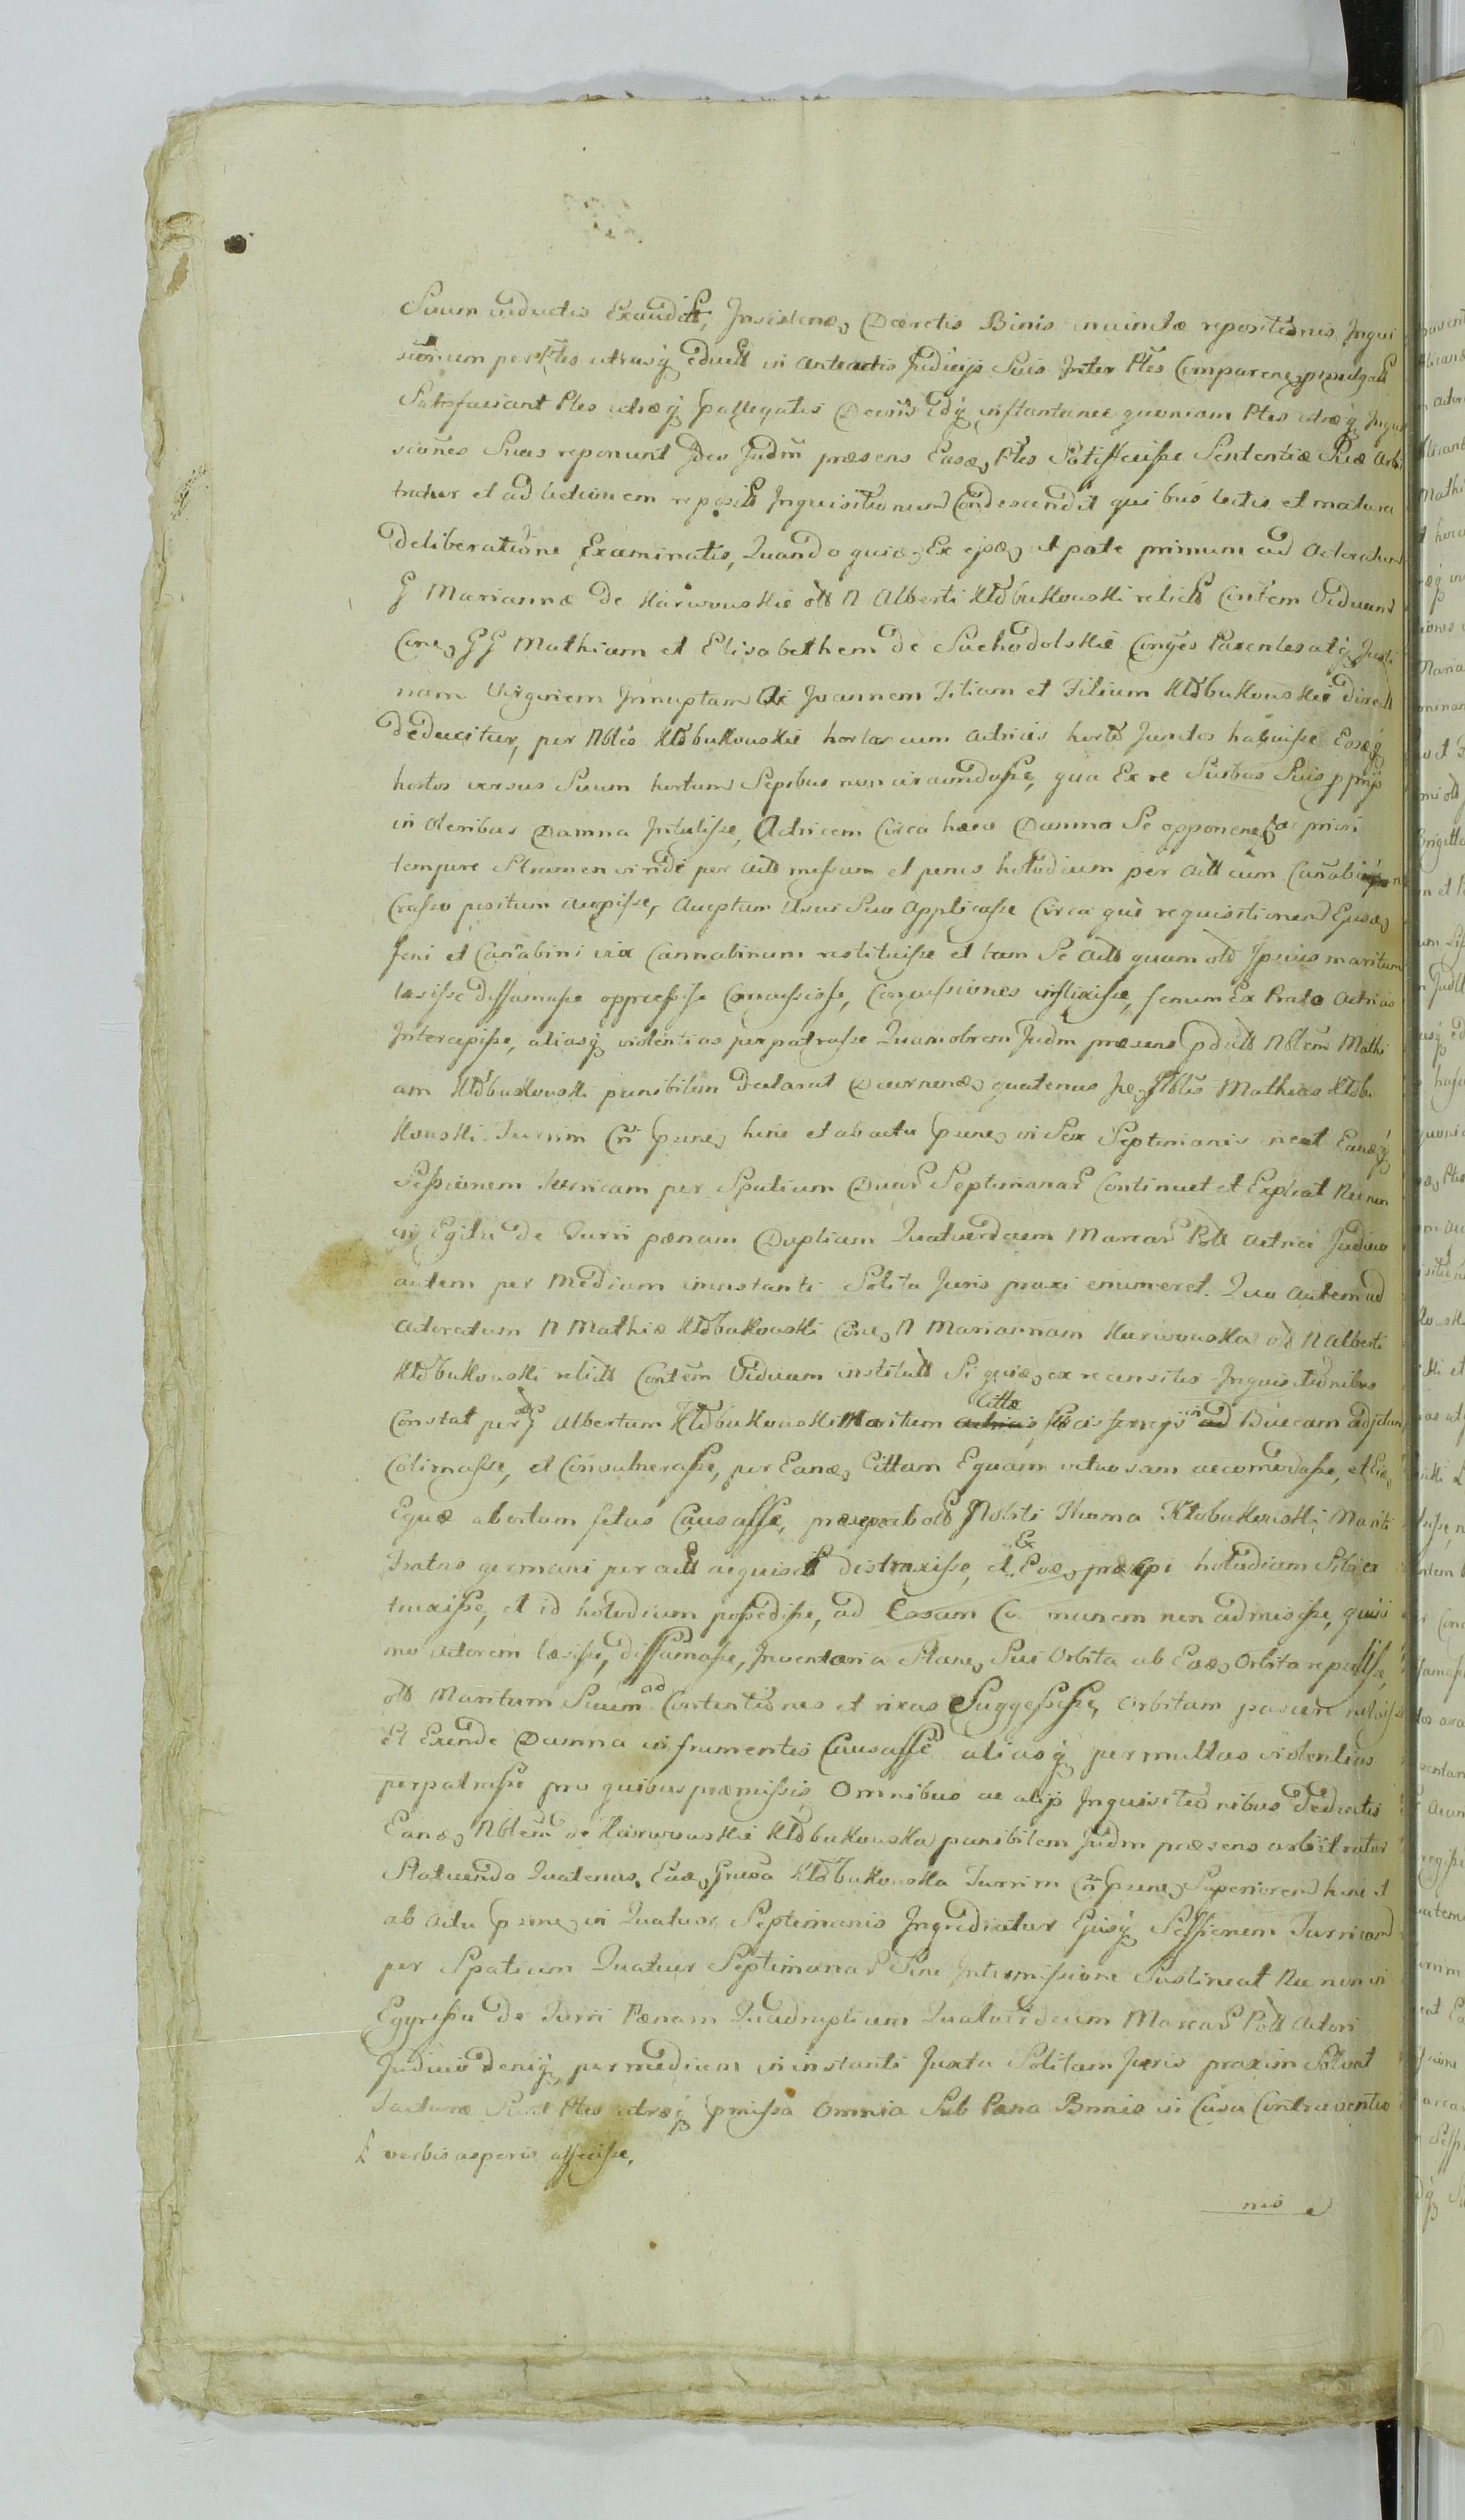 Suum inductis Exauditt, Insistens Decretis Binis inuinctæ repositionis Inqui
sitionum per Ptes utrasq̃ edutt in anteactis Judicijs Suis Inter Ptes Comparenes promulgatt
Satisfaciant Ptes utræq̃ Decretis idq̃ instantanee quoniam Ptes utræq̃ Inqui
sitiones Suas reponunt Ideo Judm̃ præsens Easdem Ptes Satisfecisse Sententiæ Suæ arbi
tratur et ad lectionem reposit Inquisitionum Condescendit quibus lectis et matura
deliberatione Examinatis, Quando quidem Ex ipsis et parte primum ad actoratum
G Mariannæ de Karwowskie olt N Alberti Kłobukowski relictt Contem Viduam
Cone, GG Mathiam et Elisabethem de Suchodolskie Conges Parentes atq̃ Justi
nam Virginem Innuptam Ac Joannem Fitiam et Filium Kłobukowskie direct
deducitur, per Nbles Kłobukowskie hortos cum Actricis horto Junctos habuisse Eosq̃
hortos versus Suum hortum Sepibus non circumdasse, qua Ex re Suibus Suis pprijs
in oleribus Damna Intulisse, Actricem Circa hæc Damna Se opponere ac priori
tempore Stramen viride per actt messum et penes hotodium per Actt cum Canabi
Crasso positum accepisse, Acceptum Usui Suo Applicasse Circa quæ requisitionem Ejusdem
feni et Canabini vix Cannabinum restituisse et tam Se Actt quam olt Ipsius maritum
læsisse diffamasse oppressisse Concussisse, Concussiones inflixisse, fenum Ex Prato Actricis
Intercepisse, aliasq̃ violentias perpatrasse Quamobrem Judm præsens pdictt Nblem Mathi
am Kłobukowski punibilem declarat Decernens quatenus Idem Nblis Mathias Kłobu
kowski Turrim hinc et ab actu in Sex Septimanis ineat Eamq̃
Sessionem Turricam per Spatium Duar Septimanar Continuet et Expleat Nec non
in Egressu de Turri pænam Duplicem Quatuordecim Marcar Poll Actrici Judicio
autem per Medium in instanti Solita Juris praxi enumeret. Quo autem ad
actoratum N Mathiæ Kłobukowski Cone N Mariannam Karwowska olt N Alberti
Kłobukowski relictt Contem Viduam institutt Si quidem ex recensitis Inquisitionibus
Constat per G Albertum Kłobukowski Maritum Cittæ Buccam adjctum
Colimasse, et Convulnerasse, per Eandem Cittam Equam vetuosam accomodasse, et Ejus
Equæ abortum fetus Causasse, præsepe ab olt Nobili Thoma Kłobukowski Mariti
fratris germani per actt acquisitt distraxisse, et Ex Eo præsepi hotodium Sibi ex
truxisse, et id hotodium possedisse, ad Casam Co munem non admisisse, quin
imo Actorem læsisse, diffamasse, Inventaria Orbita ab Ejus Orbita repulisse,
olt Maritum Suum ad Contentiones et rixas Suggessisse, Orbitam pascere
Et Exinde Damna in frumentis Causasse aliasq̃ permultas violentias
perpatrasse pro quibus præmissis Omnibus ac alijs Inquisitionibus deductis
Eandem Nblem de Karwowskie Kłobukowska punibilem Judm præsens arbitratur
Statuendo Quatenus Eadem Kłobukowska Turrim Superiorem hinc et
ab Actu in Quatuor Septimanis Ingrediatur Ejusq̃ Sessionem Turricam
per Spatium Quatuor Septimanar Sine Intermissione Sustineat Nec non in
Egressu de Turri Pænam Quadruplicem Quatuordecim Marcar Poll Actori
Judicio deniq̃ per medium in instanti Juxta Solitam Juris praxim Solvat
Facturæ Sunt Ptes utræq̃ pmissa omnia Sub Pæna Bannis in Casu Contraventio
verbis asperis affecisse.
nis